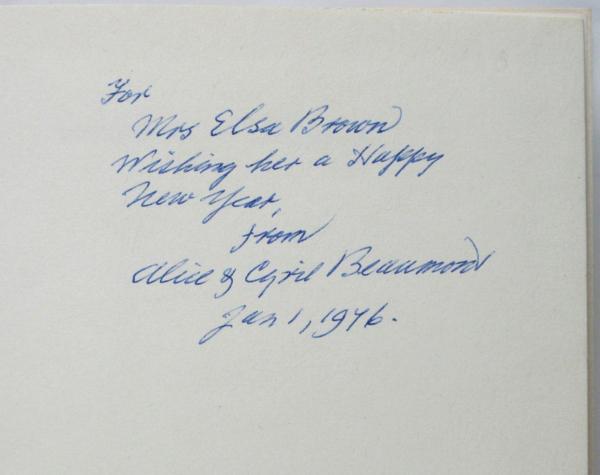 For
Mrs Elsa Brown
Wishing her a Happy
New Year,
from
Alice & Cyril Beaumont
Jan 1, 1976.